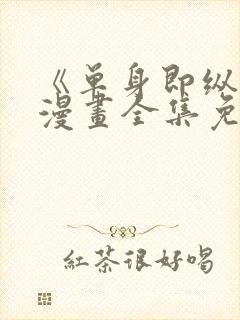 《单身即纵
漫畫全集免
紅茶很好喝